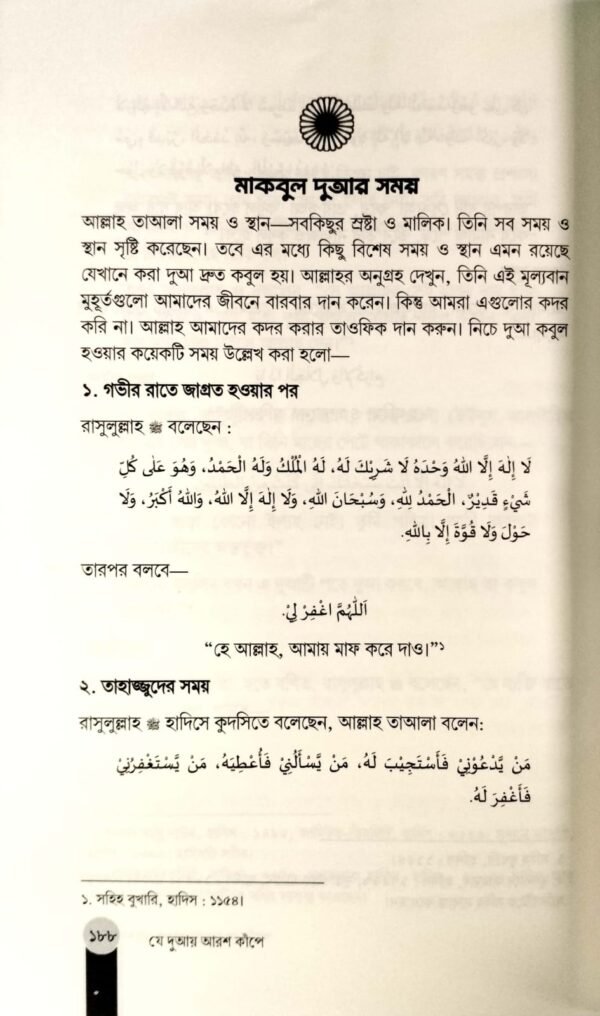 মাকবুল দুআর সময়
আল্লাহ তাআলা সময় ও স্থান—সবকিছুর স্রষ্টা ও মালিক। তিনি সব সময় ও
স্থান সৃষ্টি করেছেন। তবে এর মধ্যে কিছু বিশেষ সময় ও স্থান এমন রয়েছে
যেখানে করা দুআ দ্রুত কবুল হয়। আল্লাহর অনুগ্রহ দেখুন, তিনি এই মূল্যবান
মুহূর্তগুলো আমাদের জীবনে বারবার দান করেন। কিন্তু আমরা এগুলোর কদর
করি না। আল্লাহ আমাদের কদর করার তাওফিক দান করুন। নিচে দুআ কবুল
হওয়ার কয়েকটি সময় উল্লেখ করা হলো—
১. গভীর রাতে জাগ্রত হওয়ার পর
রাসুলুল্লাহ ﷺ বলেছেন :
لَا إِلٰهَ إِلَّا اللهُ وَحْدَهُ لَا شَرِيْكَ لَهُ، لَهُ الْمُلْكُ وَلَهُ الْحَمْدُ، وَهُوَ عَلٰى كُلِّ
شَيْءٍ قَدِيْرٌ، الْحَمْدُ لِلّٰهِ، وَسُبْحَانَ اللهِ، وَلَا إِلٰهَ إِلَّا اللهُ، وَاللهُ أَكْبَرُ، وَلَا
حَوْلَ وَلَا قُوَّةَ إِلَّا بِاللهِ.
তারপর বলবে—
اَللّٰهُمَّ اغْفِرْ لِيْ.
“হে আল্লাহ, আমায় মাফ করে দাও।”১
২. তাহাজ্জুদের সময়
রাসুলুল্লাহ ﷺ হাদিসে কুদসিতে বলেছেন, আল্লাহ তাআলা বলেন:
مَنْ يَّدْعُوْنِيْ فَأَسْتَجِيْبَ لَهُ، مَنْ يَّسْأَلُنِيْ فَأُعْطِيَهُ، مَنْ يَّسْتَغْفِرُنِيْ
فَأَغْفِرَ لَهُ.
১. সহিহ বুখারি, হাদিস : ১১৫৪।
১৮৮ যে দুআয় আরশ কাঁপে